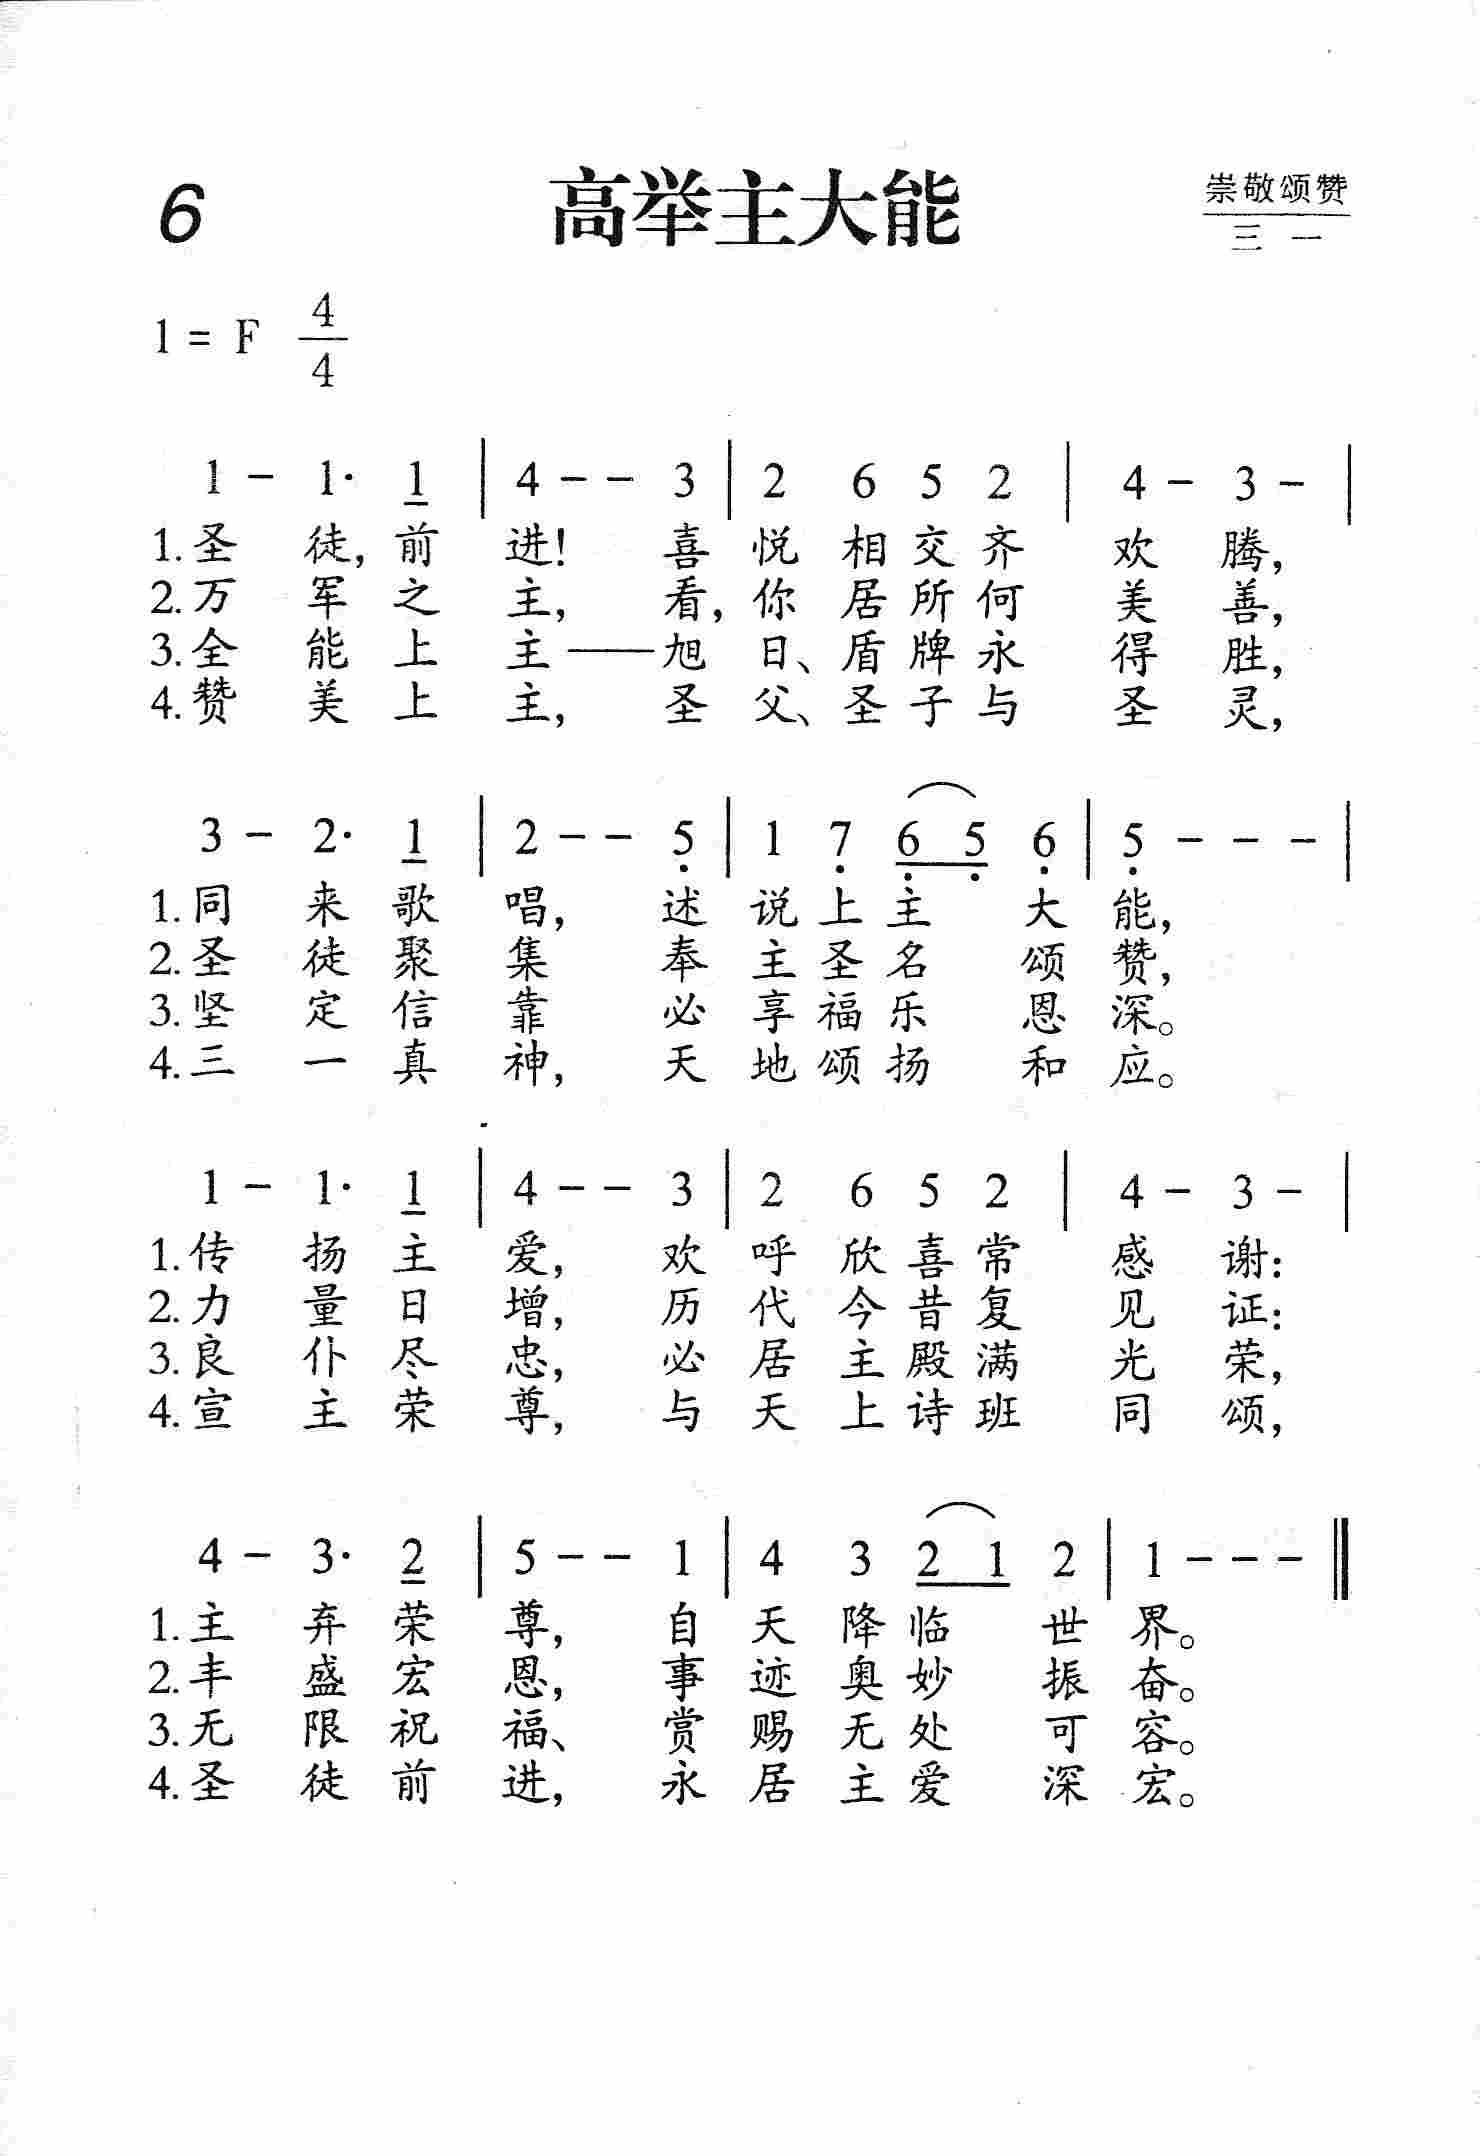 6 高举主大能 崇敬颂赞
三一
1 = F 4/4
1 – 1· 1 | 4 – – 3 | 2 6 5 2 | 4 – 3 – |
1.圣徒,前进!喜悦相交齐欢腾,
2.万军之主,看,你居所何美善,
3.全能上主——旭日、盾牌永得胜,
4.赞美上主,圣父、圣子与圣灵,
3 – 2· 1 | 2 – – 5 | 1 7 6 5 6 | 5 – – – |
1.同来歌唱,述说上主大能,
2.圣徒聚集奉主圣名颂赞,
3.坚定信靠必享福乐恩深。
4.三一真神,天地颂扬和应。
1 – 1· 1 | 4 – – 3 | 2 6 5 2 | 4 – 3 – |
1.传扬主爱,欢呼欣喜常感谢:
2.力量日增,历代今昔复见证:
3.良仆尽忠,必居主殿满光荣,
4.宣主荣尊,与天上诗班同颂,
4 – 3· 2 | 5 – – 1 | 4 3 2 1 2 | 1 – – – ‖
1.主弃荣尊,自天降临世界。
2.丰盛宏恩,事迹奥妙振奋。
3.无限祝福、赏赐无处可容。
4.圣徒前进,永居主爱深宏。